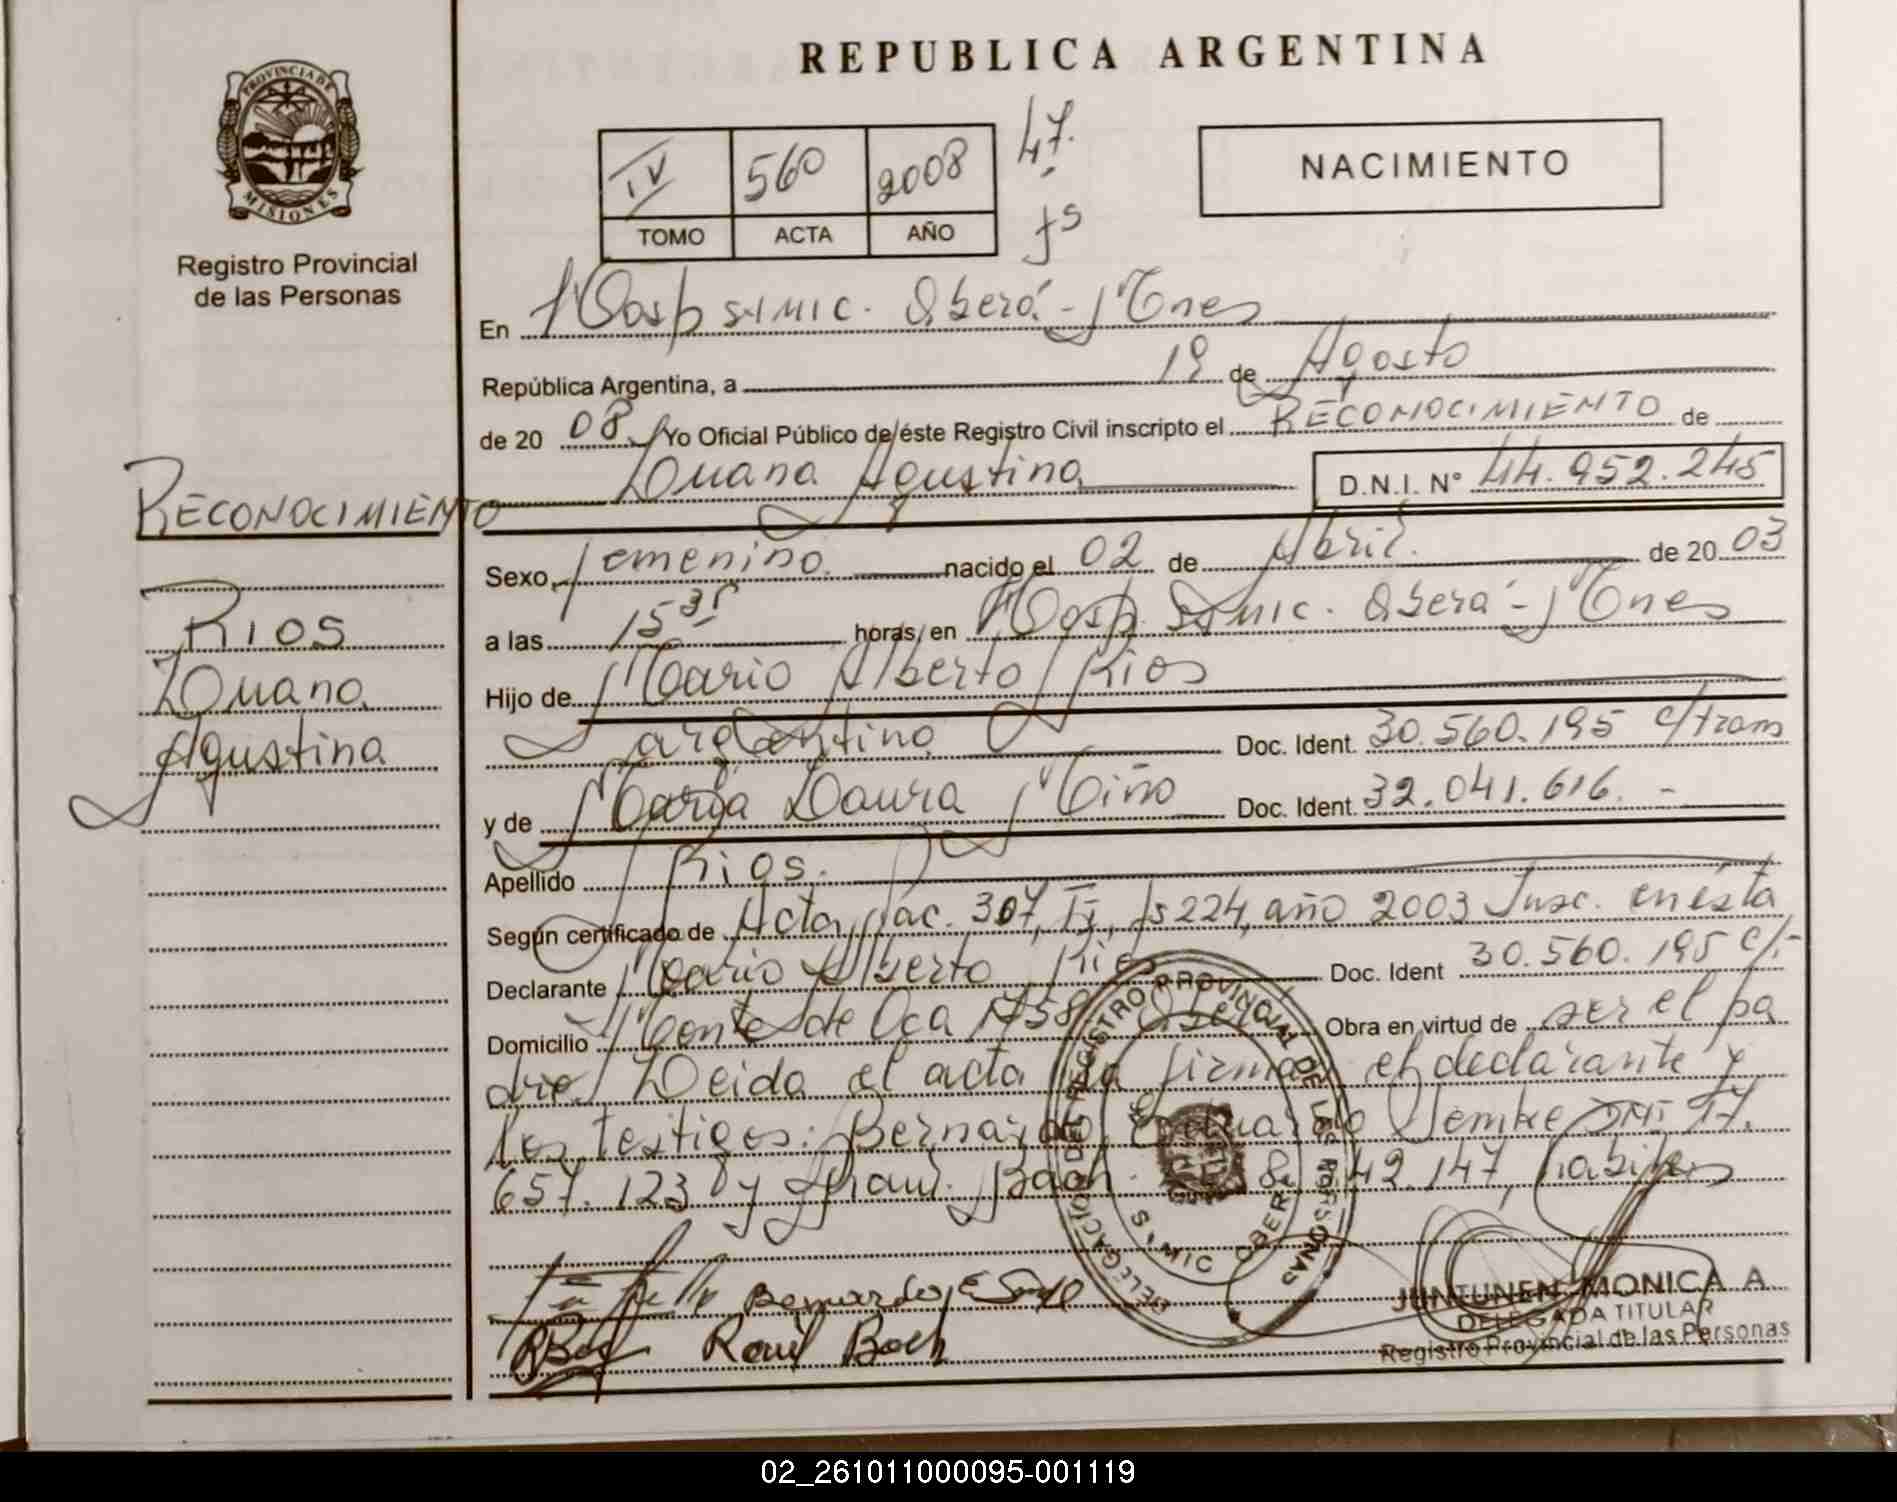 REPUBLICA ARGENTINA
PROVINCIA DE
MISIONES
Registro Provincial
de las Personas
IV 560 2008 47.
TOMO ACTA AÑO
fs
NACIMIENTO
En Hosp SAMIC. Oberá - Mnes
República Argentina, a 19 de Agosto
de 20 08. Yo Oficial Público de éste Registro Civil inscripto el RECONOCIMIENTO de
Luana Agustina D.N.I. N° 44.952.245
RECONOCIMIENTO
Sexo femenino. nacido el 02 de Abril. de 20 03
a las 15 35 horas, en Hosp. SAMIC. Oberá - Mnes
Rios
Luana
Agustina
Hijo de Mario Alberto Rios
argentino Doc. Ident. 30.560.195 c/tram
y de Maria Laura Miño Doc. Ident. 32.041.616. -
Apellido Rios.
Según certificado de Acta nac. 307, fs 224, año 2003 Insc. en ésta
Declarante Mario Alberto Rios Doc. Ident 30.560.195 c/-
Domicilio Monte de Oca Oberá Obra en virtud de ser el pa
dre. Leida el acta la firman el declarante y
los testigos: Bernardo Eduardo DNI 17.
657.123 y Raul Bach. 8. 42.147, habiles
DELEGACION REGISTRO PROVINCIAL DE LAS PERSONAS
OBERA
Bernardo E
Raul Bach
JUNTUNEN MONICA A
DELEGADA TITULAR
Registro Provincial de las Personas
02_261011000095-001119